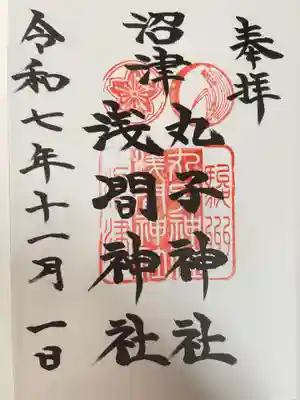 奉拝
沼津
丸子神社
浅間神社
令和七年十一月一日